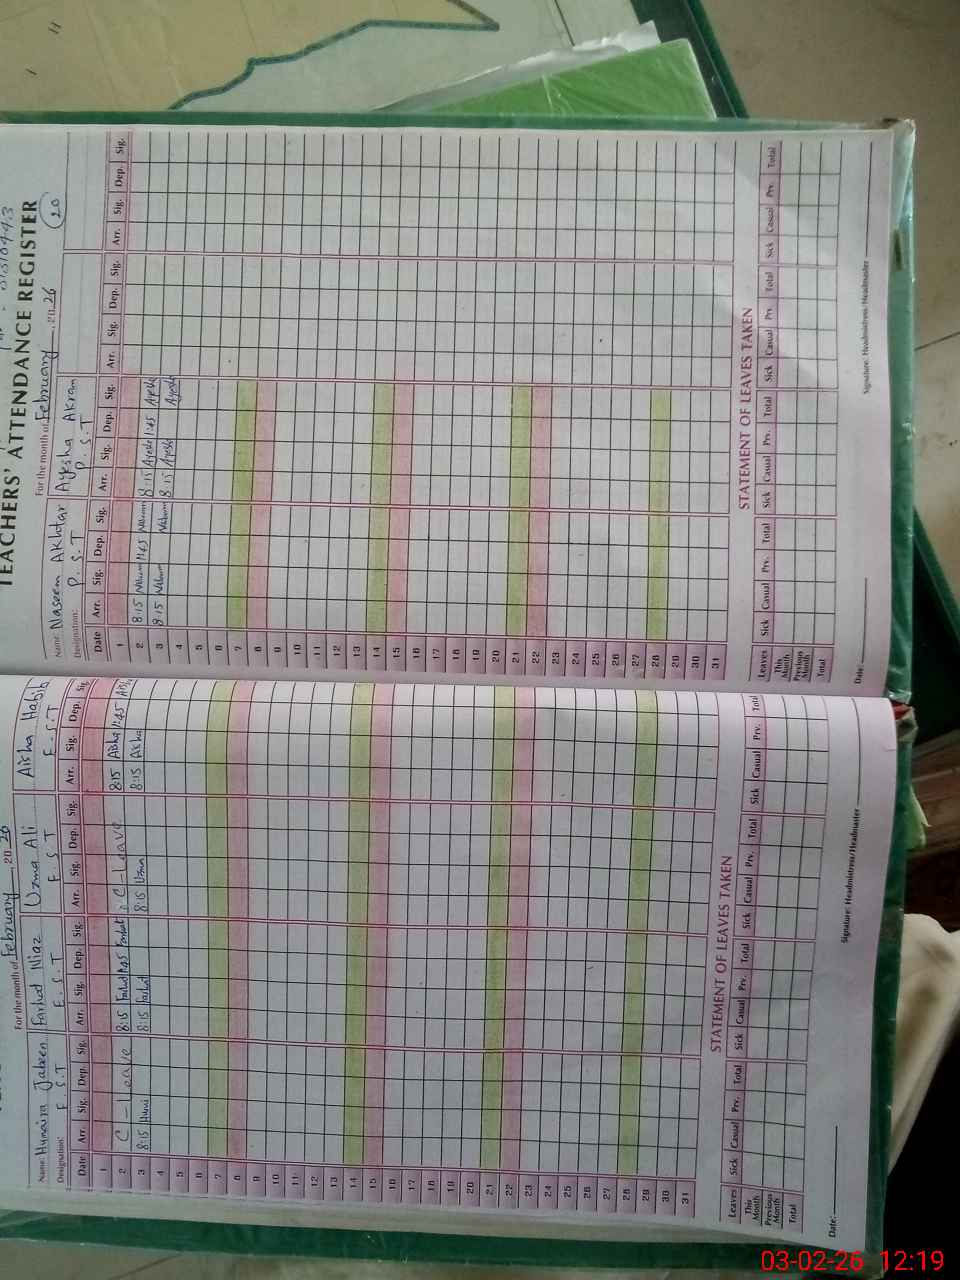 For the month of February 2026
Name: Humaira Jabeen Farhat Niaz Uzma Ali Aisha Habib
Designation: E.S.T E.S.T E.S.T E.S.T
Date Arr. Sig. Dep. Sig. Arr. Sig. Dep. Sig. Arr. Sig. Dep. Sig. Arr. Sig. Dep. Sig.
1
2 C-Leave 8:15 Farhat 1:45 Farhat C-Leave 8:15 Aisha 1:45
3 8:15 8:15 Farhat 8:15 Uzma 8:15 Aisha
4
5
6
7
8
9
10
11
12
13
14
15
16
17
18
19
20
21
22
23
24
25
26
27
28
29
30
31
STATEMENT OF LEAVES TAKEN
Leaves Sick Casual Prv. Total Sick Casual Prv. Total Sick Casual Prv. Total Sick Casual Prv. Total
This Month
Previous Month
Total
Date: Signature: Headmistress/Headmaster
TEACHERS' ATTENDANCE REGISTER
For the month of February 2026 20
Name: Naseem Akhtar Aysha Akram
Designation: P.S.T P.S.T
Date Arr. Sig. Dep. Sig. Arr. Sig. Dep. Sig. Arr. Sig. Dep. Sig. Arr. Sig. Dep. Sig.
1
2 8:15 1:45 8:15 Aysha 1:45 Aysha
3 8:15 8:15 Aysha Aysha
4
5
6
7
8
9
10
11
12
13
14
15
16
17
18
19
20
21
22
23
24
25
26
27
28
29
30
31
STATEMENT OF LEAVES TAKEN
Leaves Sick Casual Prv. Total Sick Casual Prv. Total Sick Casual Prv. Total Sick Casual Prv. Total
This Month
Previous Month
Total
Date: Signature: Headmistress/Headmaster
03-02-26 12:19